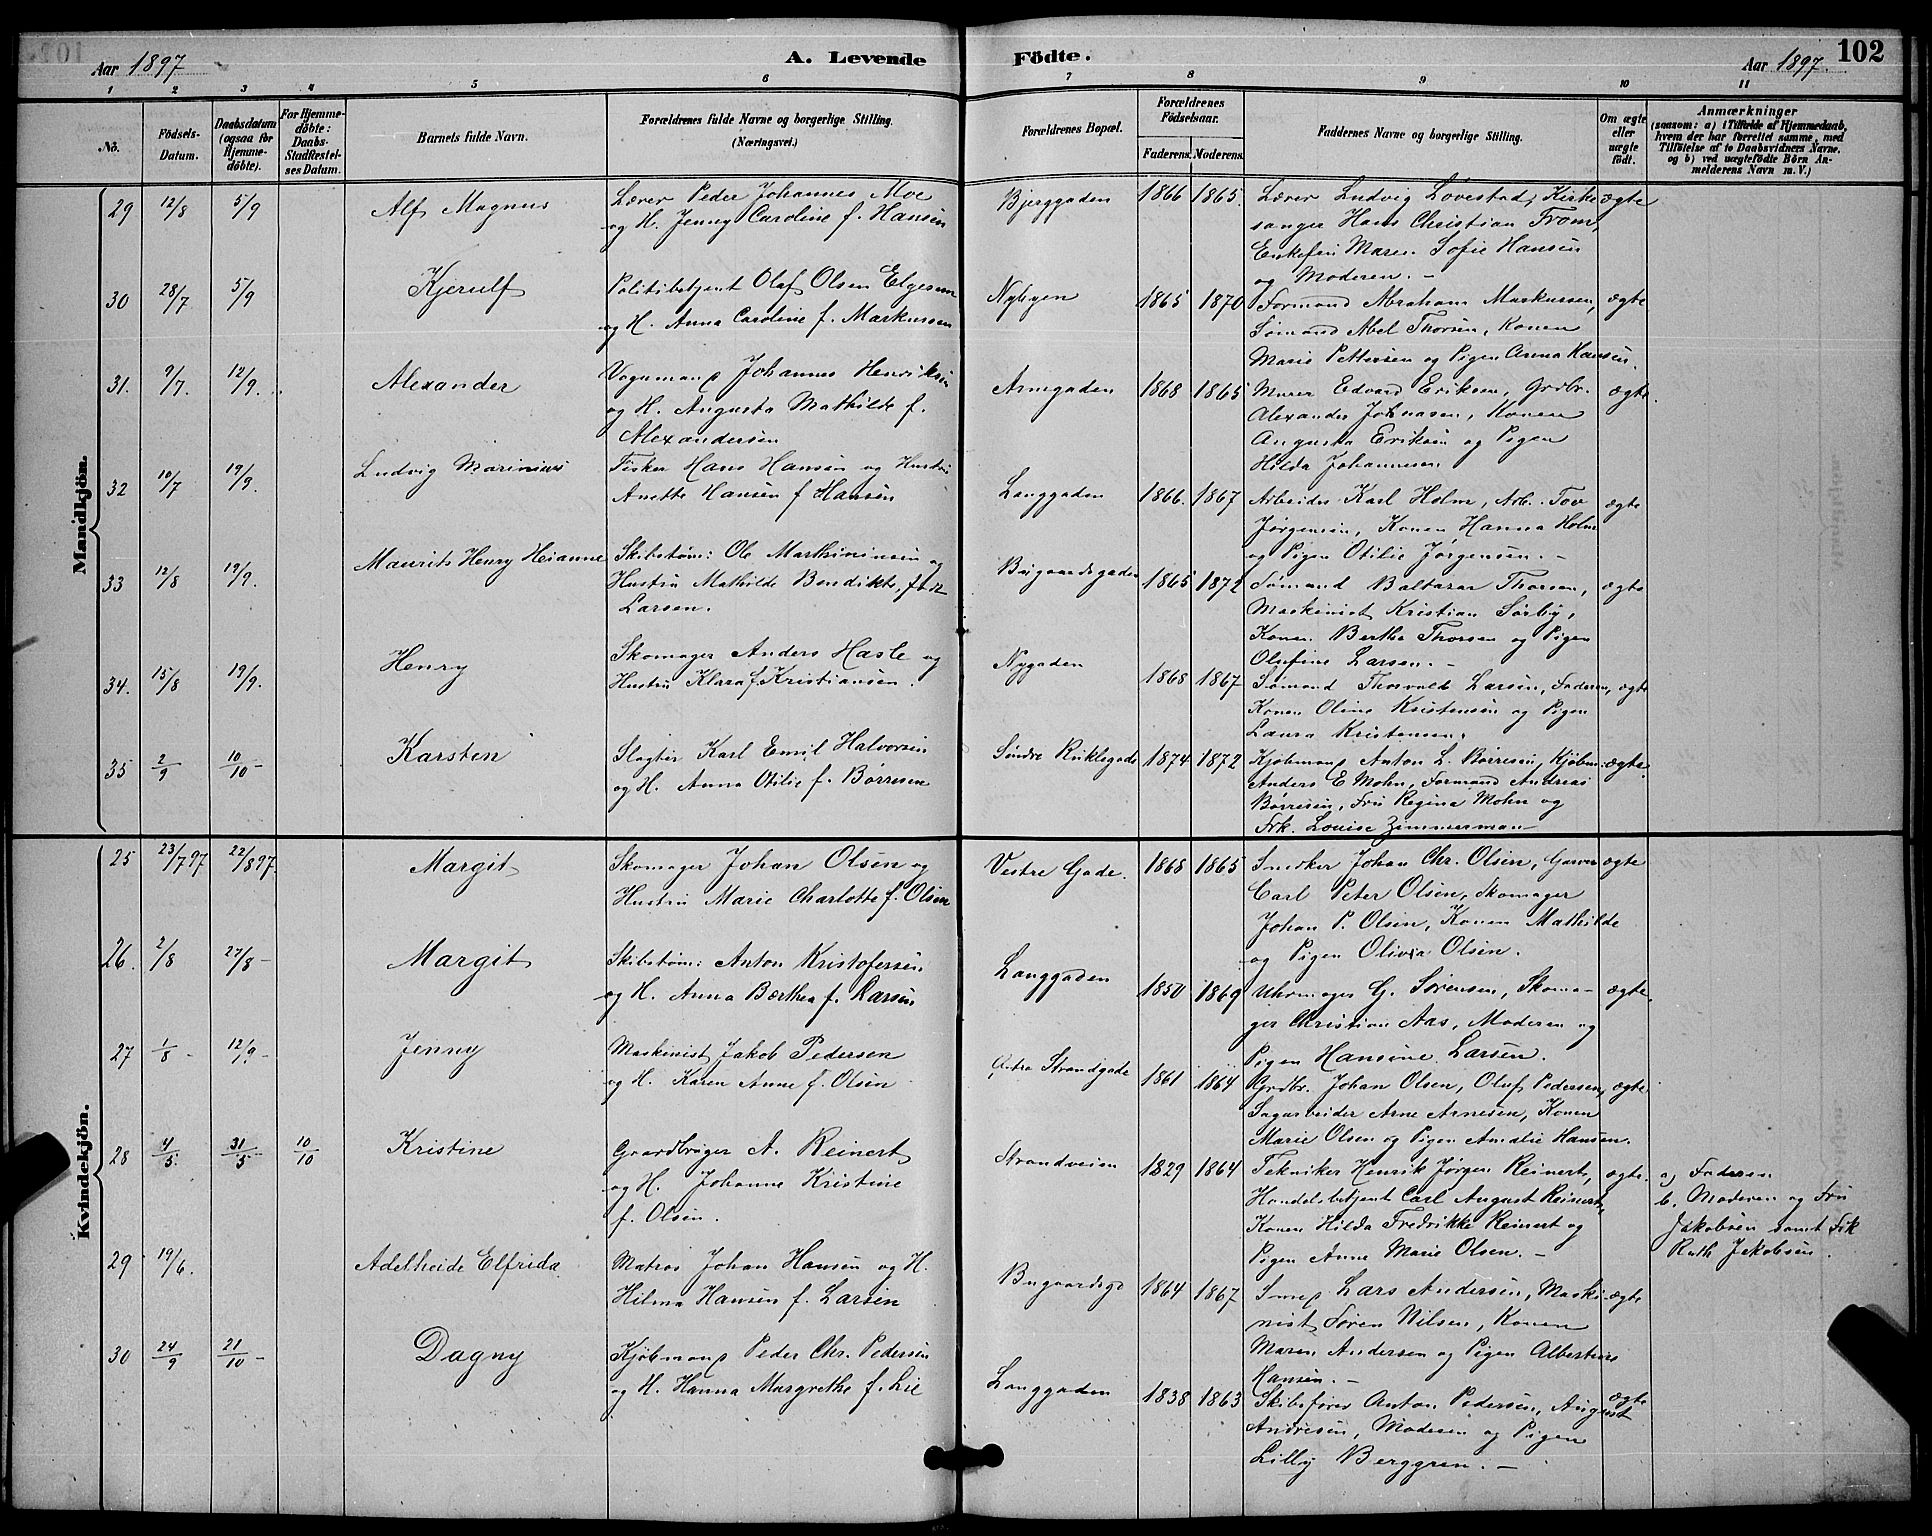 Aar 1897
A. Levende
Födte.
Aar 1897.
102
1 2 3 4 5 6 7 8 9 10 11
No.
Födsels-
Datum.
Daabsdatum
(ogsaa for
Hjemme-
döbte).
For Hjemme-
döbte:
Daabs-
Stadfæstel-
ses Datum.
Barnets fulde Navn.
Forældrenes fulde Navne og borgerlige Stilling.
(Næringsvei.)
Forældrenes Bopæl.
Forældrenes
Födselsaar.
Faderens. Moderens.
Faddernes Navne og borgerlige Stilling.
Om ægte
eller
uægte
födt.
Anmærkninger
(saasom: a) i Tilfælde af Hjemmedaab,
hvem der har forrettet samme, med
Tilföielse af to Daabsvidners Navne,
og b) ved uægtefödte Börn An-
melderens Navn m. V.)
Mandkjön.
29 12/8 5/9 Alf Magnus
Lærer Peder Johannes Moe
og H. Jenny Caroline f. Hansen
Bjerggaden 1866 1865.
Lærer Ludvig Lövestad, Kirke
sanger Hans Christian From,
Enkefru Maren Sofie Hansen
og Moderen. –
ægte
30 28/7 5/9 Kjerulf
Politibetjent Olaf Olsen Elgesem
og H. Anna Caroline f. Markussen
Nybyen 1865 1870
Formand Abraham Markussen,
Sömand Abel Thorsen, Konen
Marie Pettersen og Pigen Anna Hansen.
ægte
31. 9/7. 12/9. Alexander
Vognmand Johannes Henriksen
og H. Augusta Mathilde f.
Alexandersen
Arnegaden 1868 1865
Murer Edvard Eriksen, Grdbr.
Alexander Johnasen, Konen
Augusta Eriksen og Pigen
Hilda Johannesen
ægte.
32 10/7 19/9. Ludvig Marinius
Fisker Hans Hansen og Hustru
Anette Hansen f Hansen
Langgaden 1866. 1867
Arbeider Karl Holm, Arb. Tov
Jørgensen, Konen Hanna Holm
og Pigen Otilie Jørgensen. –
ægte
33 12/8 19/9. Maurits Henry Heianne
Skibstøm: Ole Marthiniusen og
Hustru Mathilde Bendikte, født
Larsen.
Bugaardsgaden 1865 1872
Sømand Baltazar Thorsen,
Maskinist Kristian Sørby,
Konen Berthe Thorsen og Pigen
Olufine Larsen. –
ægte
34. 15/8 19/9. Henry
Skomager Anders Hasle og
Hustru Klara f. Kristiansen.
Nygaden 1868 1867
Sömand Thorvald Larsen, Faderen,
Konen Oline Kristensen og Pigen
Laura Kristensen.
ægte
35 2/9 10/10 – Karsten
Slagter Karl Emil Halvorsen
og H. Anna Otilie f. Børresen
Søndre 1874 1872
Kjøbmand Anton L. Børresen, Kjøbm.
Anders E Mohn, Formand Andreas
Børresen, Fru Regina Mohn og
Frk. Louise Zimmerman
ægte.
Kvindekjön.
25 23/7 97 22/8 97. Margit
Skomager Johan Olsen og
Hustru Marie Charlotte f. Olsen
Vestre Gade. 1868 1865
Snedker Johan Chr. Olsen, Garver
Carl Peter Olsen, Skomager
Johan P. Olsen, Konen Mathilde
og Pigen Olivia Olsen.
ægte
26. 2/8 27/8 – Margit
Skibstøm: Anton Kristofersen
og H. Anna Berthea f. Larsen
Langgaden 1850 1869
Uhrmager G. Sørensen, Skoma-
ger Christian Aas, Moderen og
Pigen Hansine Larsen.
ægte.
27 1/8 – 12/9 – Jenny
Maskinist Jakob Pedersen
og H. Karen Anne f. Olsen
Østre Strandgade 1861 1864
Grdbr. Johan Olsen, Oluf Pedersen,
Sagarbeider Arne Arnesen, Konen
Marie Olsen og Pigen Amalie Hansen.
ægte
28 4/5. 31/5 – 10/10 Kristine
Gaardbruger A. Reinert
og H. Johanne Kristine
f. Olsen.
Strandveien 1829 1864
Tekniker Henrik Jørgen Reinert,
Handelsbetjent Carl August Reinert,
Konen Hilda Fredrikke Reinert og
Pigen Anne Marie Olsen. –
ægte.
a) Faderen
b. Moderen og Fru
Jakobsen samt Frk
Ruth Jakobsen.
29 19/6. Adelheide Elfrida
Matros Johan Hansen og H.
Hilma Hansen f. Larsen
Bugaardsgd 1864 1867
Smed Lars Andersen, Maski-
nist Søren Nilsen, Konen
Maren Andersen og Pigen Albertine
Hansen. –
ægte
30 24/9 21/10 – Dagny
Kjøbmand Peder Chr. Pedersen
og H. Hanna Margrethe f. Lie
Langgaden 1838 1863
Skibsfører Anton Pedersen, August
Andresen, Moderen og Pigen
Lilly Berggren. –
ægte